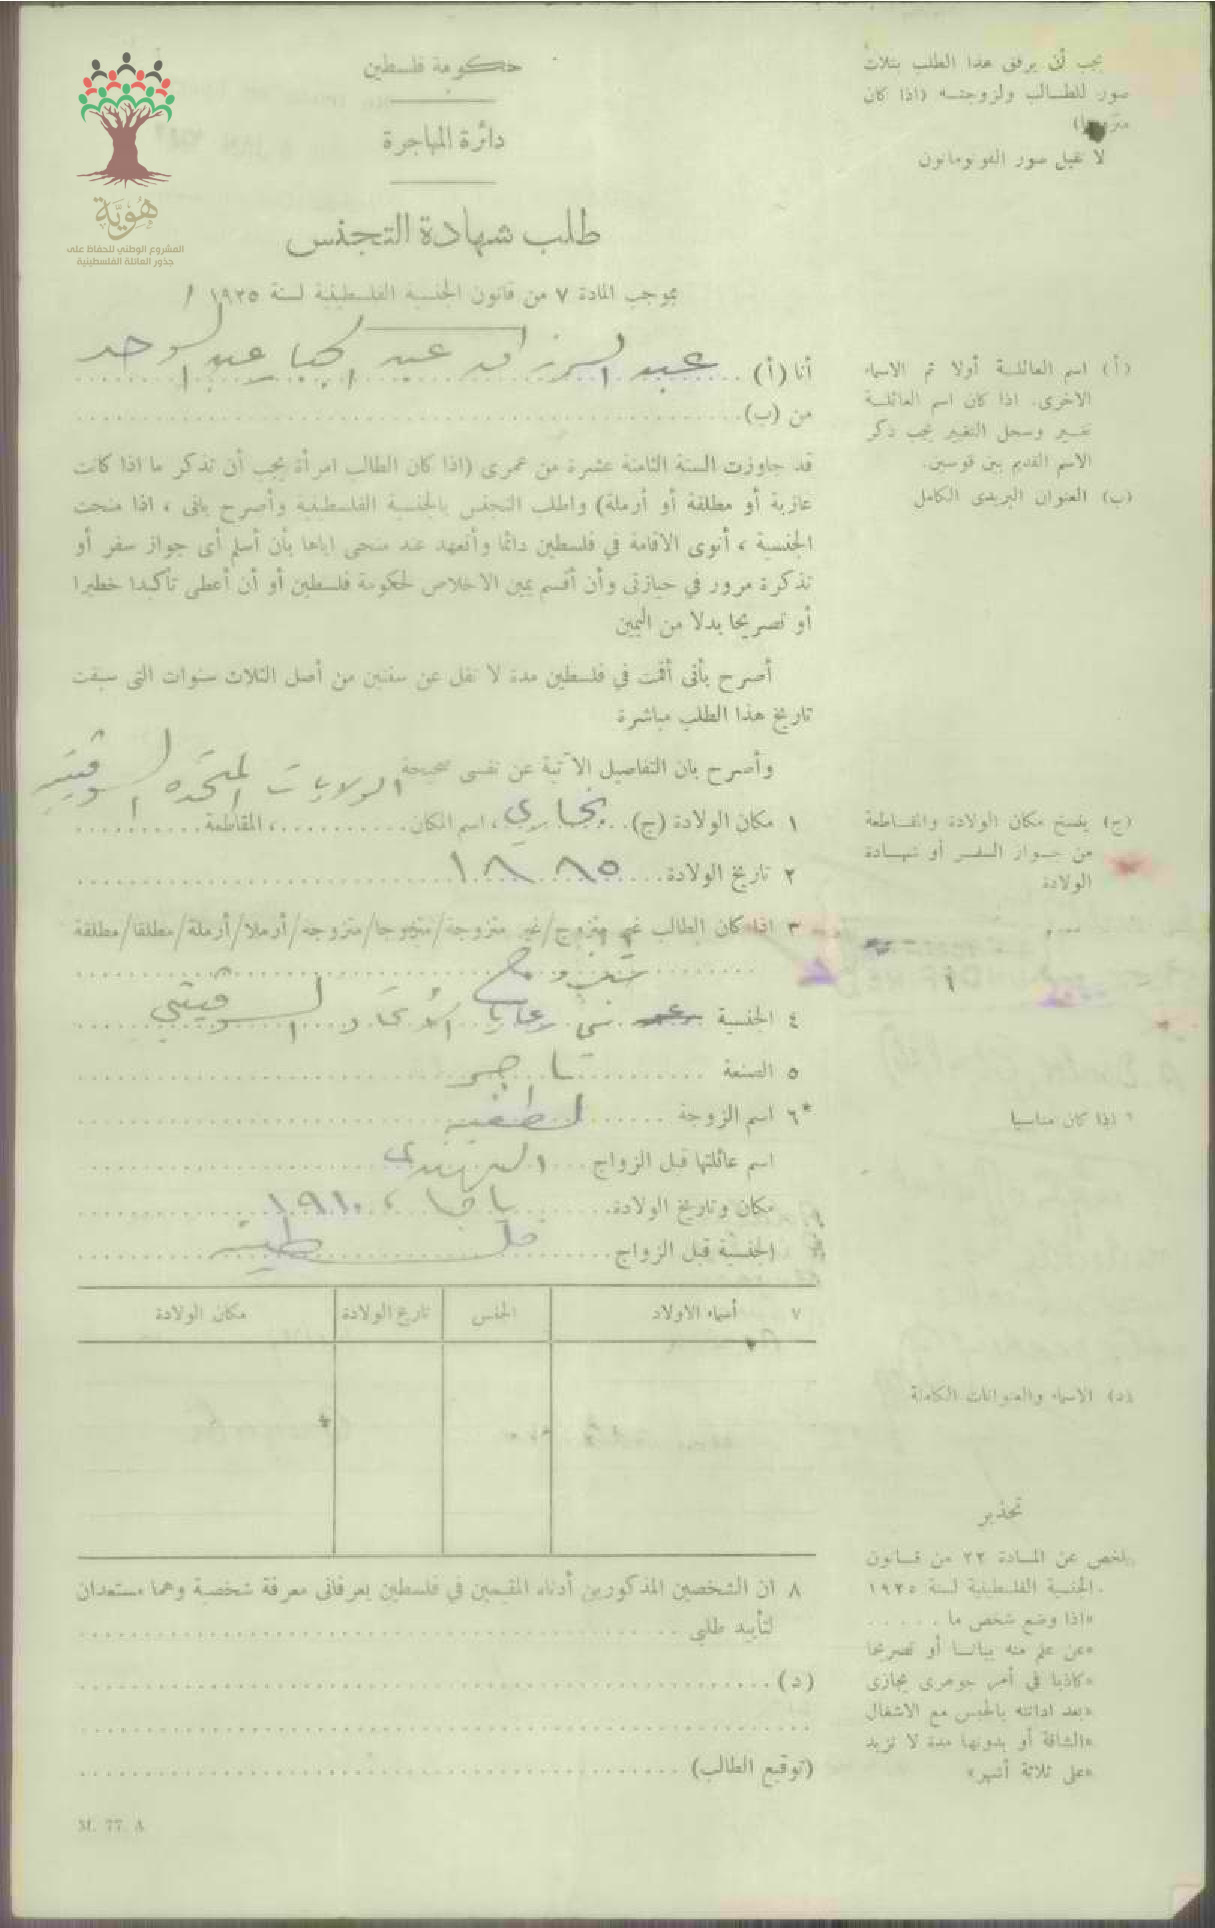 هوية
المشروع الوطني للحفاظ على
جذور العائلة الفلسطينية
حكومة فلسطين
دائرة المهاجرة
طلب شهادة التجنس
بموجب المادة ٧ من قانون الجنسية الفلسطينية لسنة ١٩٢٥
يجب أن يرفق هذا الطلب بثلاث
صور للطالب ولزوجته (اذا كان
متزوجا)
لا تقبل صور الفوتوماتون
أنا (أ) عبد الرزاق عبد الجبار عبد الوحد
من (ب)
(أ) اسم العائلة أولا ثم الاسماء
الاخرى. اذا كان اسم العائلة
تغير وسجل التغيير يجب ذكر
الاسم القديم بين قوسين.
(ب) العنوان البريدى الكامل
قد جاوزت السنة الثامنة عشرة من عمرى (اذا كان الطالب امرأة يجب أن تذكر ما اذا كانت
عازبة أو مطلقة أو أرملة) واطلب التجنس بالجنسية الفلسطينية وأصرح بانى ، اذا منحت
الجنسية ، أنوى الاقامة في فلسطين دائما وأتعهد عند منحى اياها بأن أسلم أى جواز سفر أو
تذكرة مرور في حيازتى وأن أقسم يمين الاخلاص لحكومة فلسطين أو أن أعطى تأكيدا خطيرا
أو تصريحا بدلا من اليمين
أصرح بأنى أقمت في فلسطين مدة لا تقل عن سنتين من أصل الثلاث سنوات التى سبقت
تاريخ هذا الطلب مباشرة
وأصرح بان التفاصيل الآتية عن نفسى صحيحة الولايات المتحده السوفيتيه
١ مكان الولادة (ج) بخارى ، اسم المكان ، المقاطعة
(ج) ينسخ مكان الولادة والمقاطعة
من جواز السفر أو شهادة
الولادة
٢ تاريخ الولادة ١٨٨٥
٣ اذا كان الطالب غير متزوج/غير متزوجة/متزوجا/متزوجة/أرملا/أرملة/مطلقا/مطلقة
متزوج
٤ الجنسية من رعايا الاتحاد السوفيتي
٥ الصنعة تاجر
*٦ اسم الزوجة لطفيه
* اذا كان مناسبا
اسم عائلتها قبل الزواج الهندى
مكان وتاريخ الولادة يافا ، ١٩١٠
الجنسية قبل الزواج فلسطينيه
٧ أسماء الاولاد الجنس تاريخ الولادة مكان الولادة
(د) الاسماء والعنوانات الكاملة
٨ ان الشخصين المذكورين أدناه المقيمين في فلسطين يعرفانى معرفة شخصية وهما مستعدان
لتأييد طلبى
(د)
(توقيع الطالب)
تحذير
ملخص عن المادة ٢٢ من قانون
الجنسية الفلسطينية لسنة ١٩٢٥
«اذا وضع شخص ما
«عن علم منه بيانا أو تصريحا
«كاذبا في أمر جوهرى يجازى
«بعد ادانته بالحبس مع الاشغال
«الشاقة أو بدونها مدة لا تزيد
«على ثلاثة أشهر»
M. 77. A